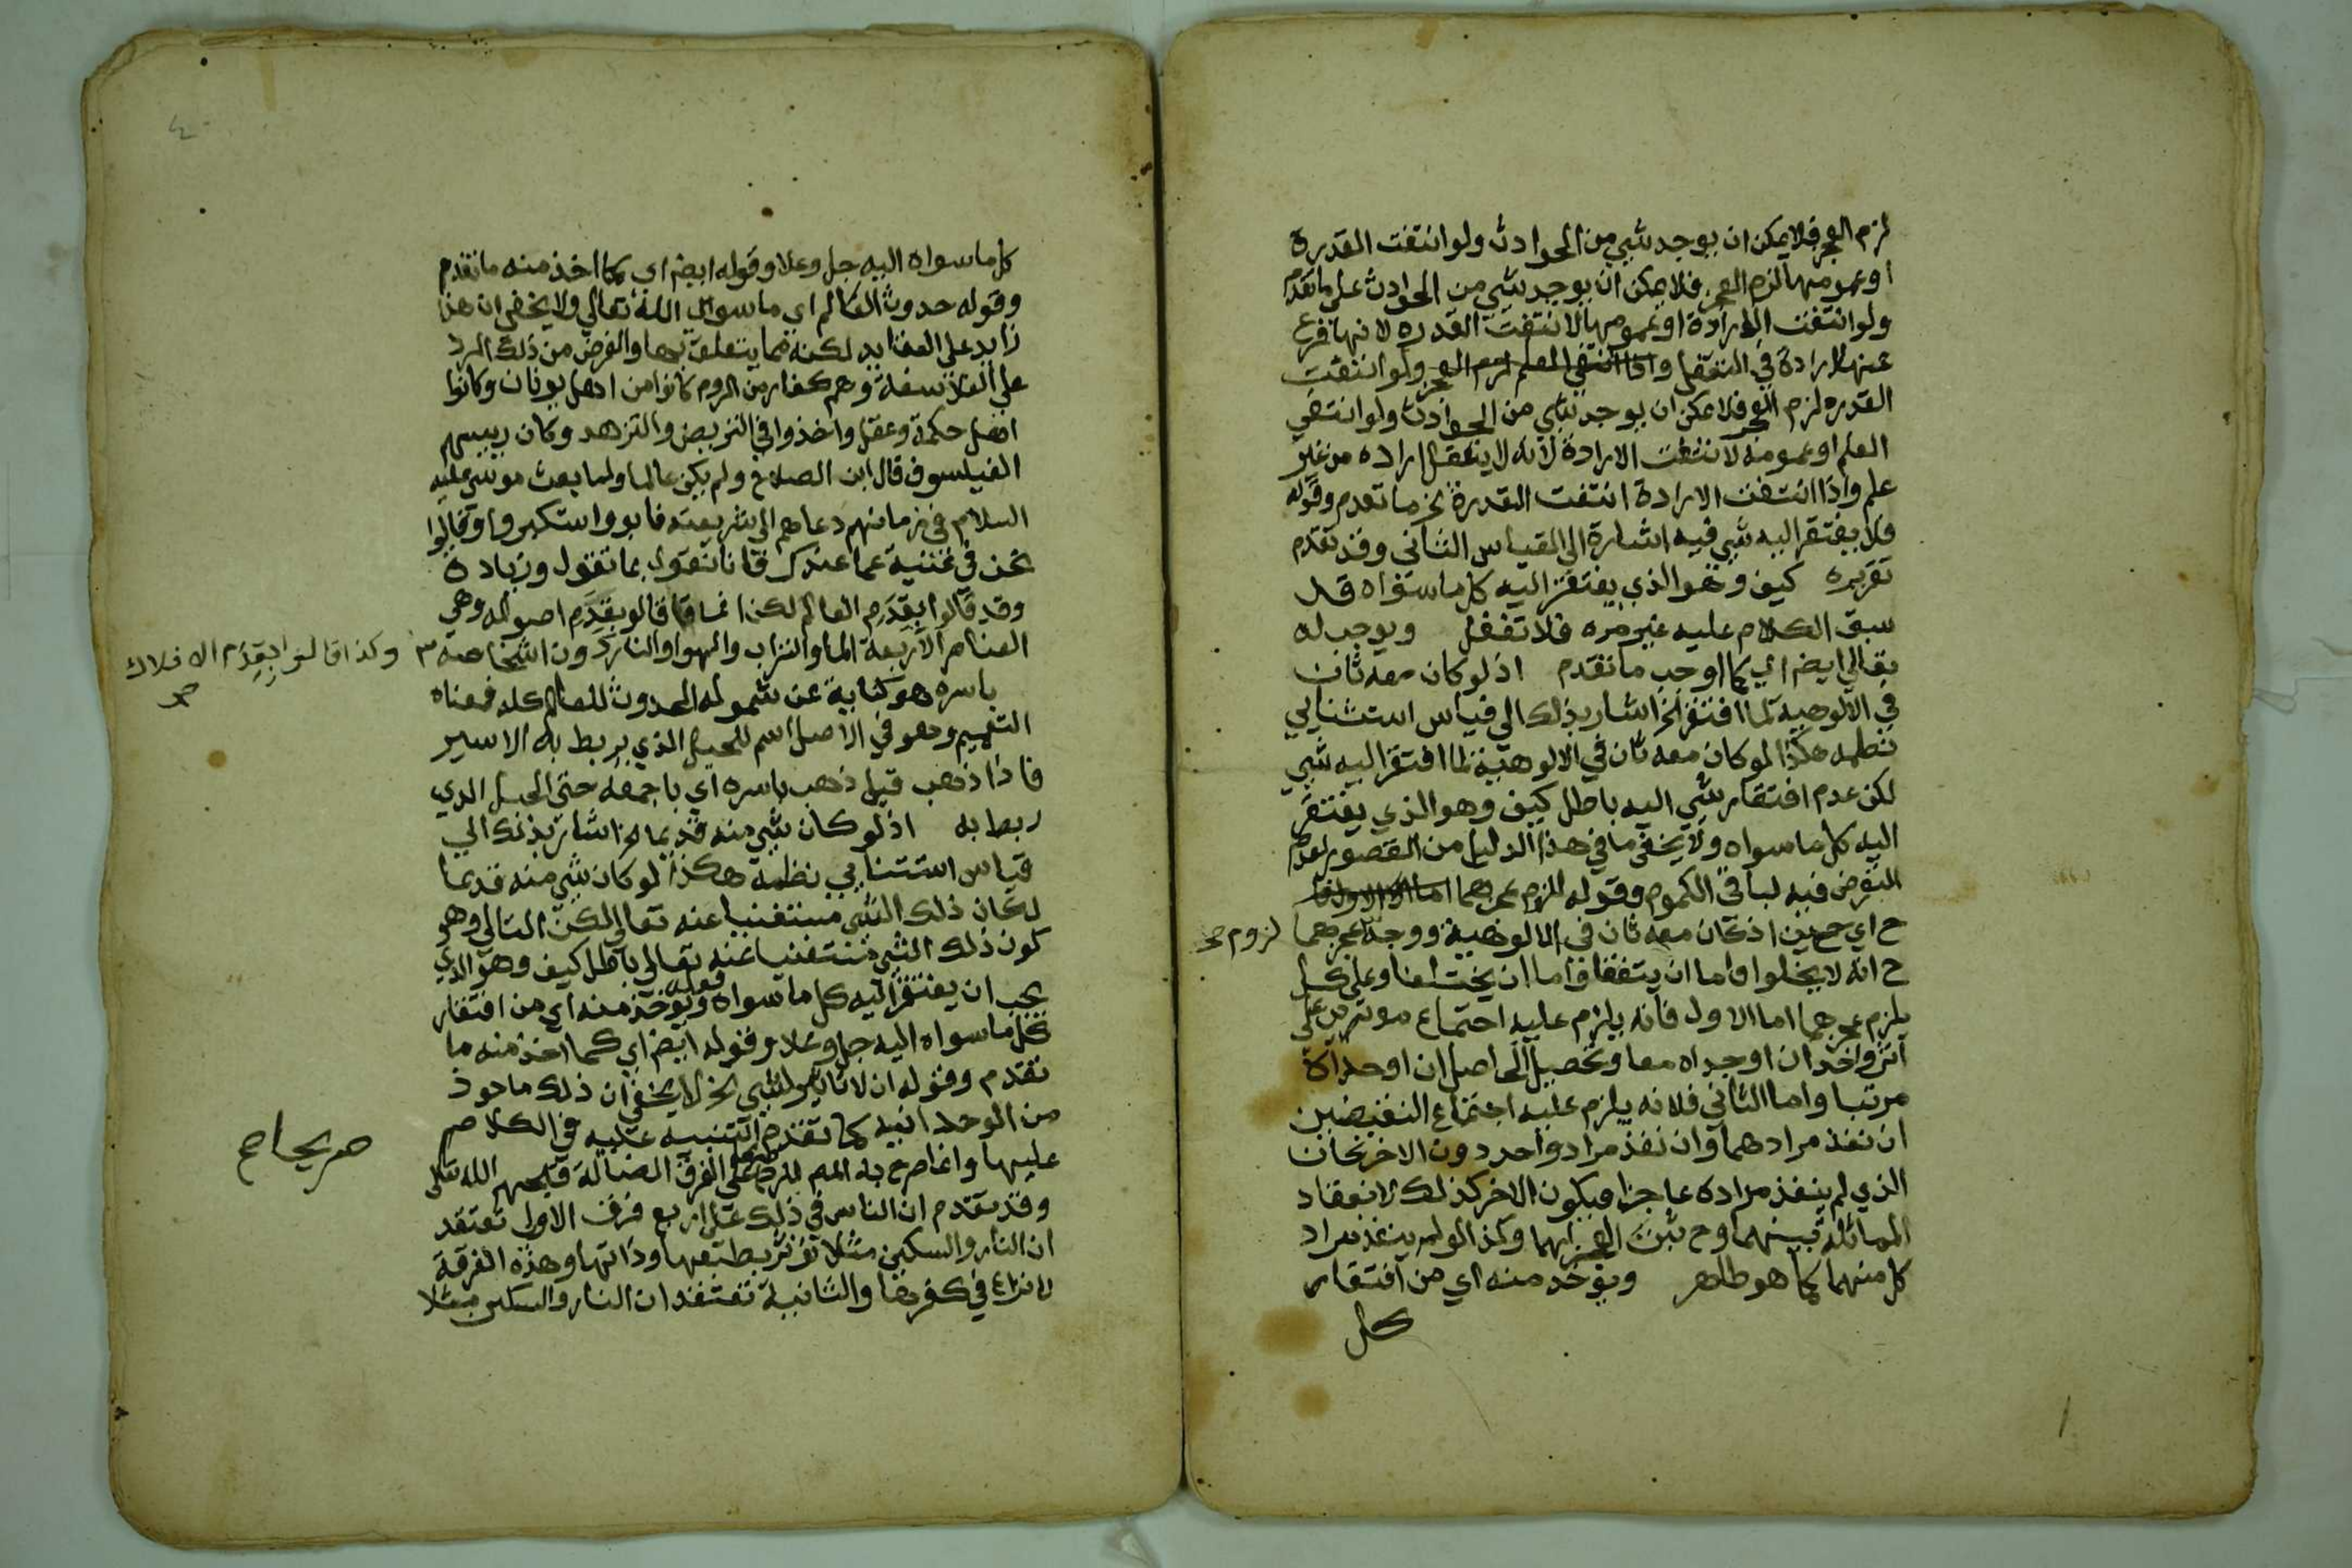 لزم العجز فلا يمكن ان يوجد شيي من الحوادث ولو انتفت القدرة
او عمومها لزم العجز فلا يمكن ان يوجد شيي من الحوادث على ما تقدم
ولو انتفت الارادة او عمومها لانتفت القدره لانها فرع
عنها لارادة في التعقل واذا انتفي العلم لزم العجز ولو انتفت
القدره لزم العجز فلا يمكن ان يوجد شيي من الحوادث ولو انتفي
العلم او عمومه لانتفت الارادة لانه لا يتعقل اراده من غير
علم واذا انتفت الارادة انتفت القدرة الخ ما تقدم وقوله
فلا يفتقر اليه شيي فيه اشارة الي القياس الثاني وقد تقدم
تقريره كيف وهو الذي يفتقر اليه كل ما سواه قد
سبق الكلام عليه غير مره فلا تغفل ويوجب له
تعالي ايضا اي كما اوجب ما تقدم اذ لو كان معه ثان
في الالوهية لما افتقر الخ اشار بذلك الي قياس استثنايي
نظمه هكذا لو كان معه ثان في الالوهية لما افتقر اليه شيي
لكن عدم افتقار شيي اليه باطل كيف وهو الذي يفتقر
اليه كل ما سواه ولا يخفي ما في هذا الدليل من القصور لعدم
التعرض فيه لباقي الكموم وقوله للزوم عجزهما
ح اي حين اذ كان معه ثان في الالوهية ووجه عجزهما
لزوم صح
ح انه لا يخلوا فاما ان يتفقا واما ان يختلفا وعلى كل
يلزم عجزهما اما الاول فانه يلزم عليه اجتماع موثرين على
اثر واحد ان اوجداه معا وتحصيل الحاصل ان اوجداه
مرتبا واما الثاني فلانه يلزم عليه اجتماع النقيضين
ان نفذ مرادهما وان نفذ مراد واحد دون الاخر كان
الذي لم ينفذ مراده عاجزا فيكون الاخر كذلك لانعقاد
المماثلة بينهما وح ثبت العجز لهما وكذا لو لم ينفذ مراد
كل منهما كما هو ظاهر ويوخذ منه اي من افتقار
كل
كل ما سواه اليه جل وعلا وقوله ايضا اي كما اخذ منه ما تقدم
وقوله حدوث العالم اي ما سوى الله تعالي ولا يخفي ان هذا
زايد على العقايد لكنه مما يتعلق بها والغرض من ذلك الرد
على الفلاسفة وهم كفار من الروم كانوا من اهل يونان وكانوا
اهل حكمة وعقل واخذوا في التريض والتزهد وكان رييسهم
الفيلسوف قال ابن الصلاح ولم يكن عالما ولما بعث موسي عليه
السلام في زمانهم دعاهم الي شريعته فابوا واستكبروا وقالوا
نحن في غنية عما عندك فانا نقول بما تقول وزيادة
وقد قالوا بقدم العالم لكن انما قالو بقدم اصوله وهي
العناصر الاربعة الما والتراب والهوا والنار دون اشخاصه
وكذا قالوا بقدم الافلاك
صح
باسره هو كناية عن شموله الحدوث للعالم كله فمعناه
التعميم وهو في الاصل اسم للحبل الذي يربط به الاسير
فاذا ذهب قيل ذهب باسره اي باجمعه حتى الحبل الذي
ربط به اذ لو كان شيي منه قديما الخ اشار بذلك الي
قياس استثنايي نظمه هكذا لو كان شيي منه قديما
لكان ذلك الشي مستغنيا عنه تعالي لكن التالي وهو
كون ذلك الشي مستغنيا عنه تعالي باطل كيف وهو الذي
يجب ان يفتقر اليه كل ما سواه قوله ويوخذ منه اي من افتقار
كل ما سواه اليه جل وعلا وقوله ايضا اي كما اخذ منه ما
تقدم وقوله ان لا تاثير لشي الخ لا يخفي ان ذلك ماخوذ
من الوحدانية كما تقدم التنبيه عليه في الكلام
عليها وانما صرح به المص للرد على الفرق الضالة قبحهم الله تعالى
صريحا صح
وقد تقدم ان الناس في ذلك على اربع فرق الاولي تعتقد
ان النار والسكين مثلا توثر بطبعها وذاتها وهذه الفرقة
لا نزاع في كفرها والثانية تعتقد ان النار والسكين مثلا